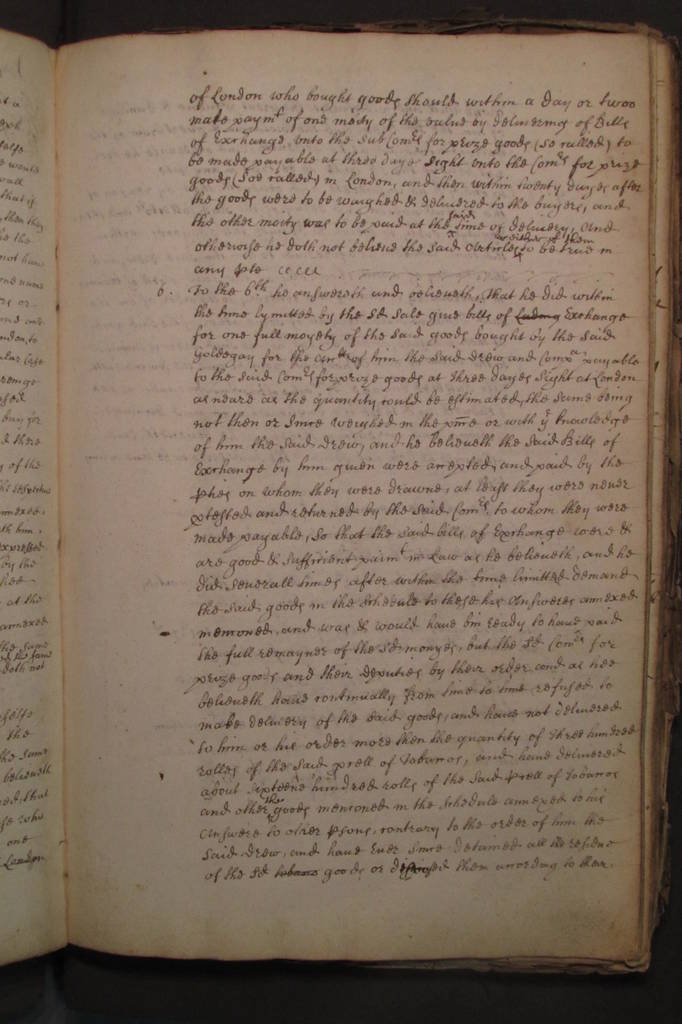 of London who bought goods should within a day or twoo
make paym:t of one moity of the value by delivering of Bills
of Exchange, unto the sub Com:rs for prize goods (so called) to
be made payable at three dayes sight unto the Com:rs for prize
goods (soe called) in London, and then within twenty dayes after
the goods were to be waighed & delivered to the buyers, and
the other moity was to be paid at the said time of delivery, And
otherwise he doth not believe the said Articles or either of them to be true in
any pte
6. To the 6th he answereth and believeth, that he did within
the time lymitted by the sd sale give bills of Exchange
for one full moyety of the said goods bought by the said
Goldegay for the of him the said Drew and Comp:a payable
to the said Com:rs for prize goods at three dayes sight at London
as neare as the quantity could be estimated, the same being
not then or since weighed in the pnce or with ye knowledge
of him the said Drew, and he believeth the said Bills of
Exchange by him given were accepted, and paid by the
pties on whom they were drawne, at least they were never
ptested and returned by the said Com:rs to whom they were
made payable, so that the said bills of Exchange were &
are good & sufficient paim:t in Law as he believeth, and he
did severall times after within the time limitted demand
the said goods in the schedule to these his Answeres annexed
menconed, and was & would have bin ready to have paid
the full remayner of the sd monyes, but the sd Com:rs for
prize goods and their deputies by their order and as hee
believeth have continually from time to time refused to
make delivery of the said goods, and have not delivered
to him or his order more then the quantity of three hundred
rolles of the said pcell of Tobaccos, and have delivered
about sixteene hundred rolls of the said pcell of Tobaccos
and other the goods menconed in the schedule annexed to his
Answere to other psons, contrary to the order of him the
said Drew, and have ever since detained all the residue
of the sd tobacco goods or them according to their